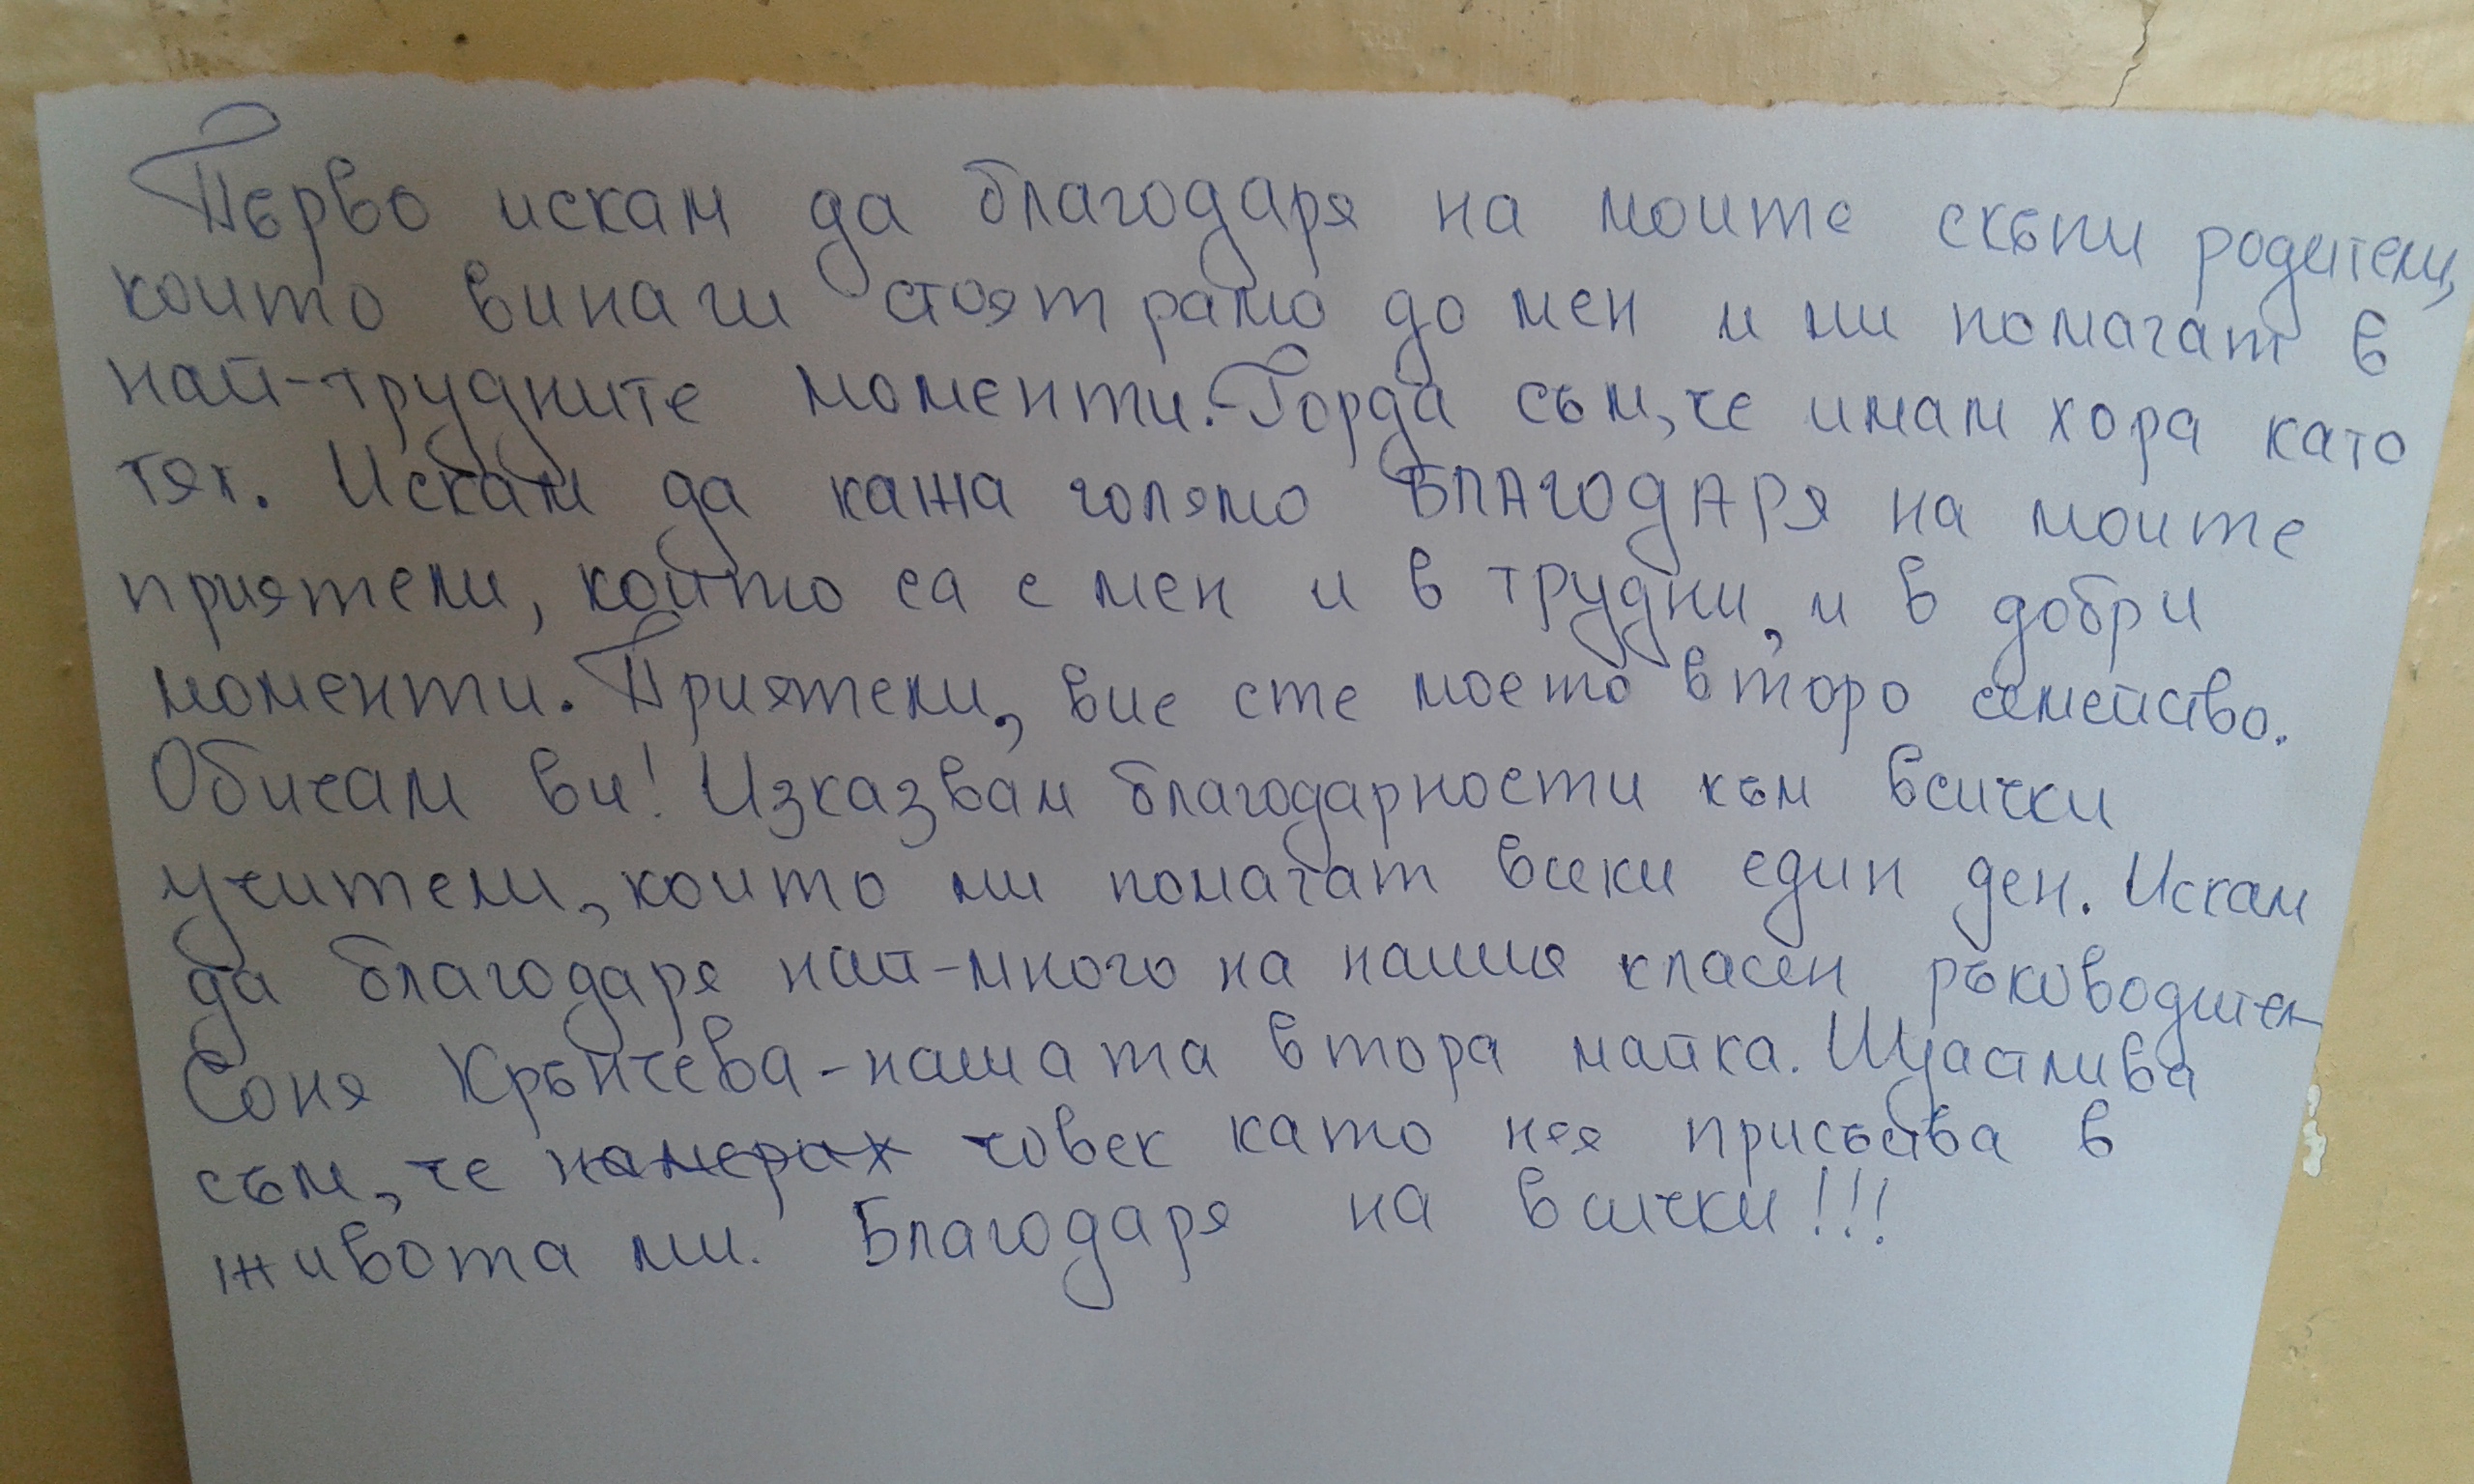 Първо искам да благодаря на моите скъпи родители,
които винаги стоят рамо до мен и ми помагат в
най-трудните моменти. Горда съм, че имам хора като
тях. Искам да кажа голямо БЛАГОДАРЯ на моите
приятели, който са с мен и в трудни, и в добри
моменти. Приятели, вие сте моето второ семейство.
Обичам ви! Изказвам благодарности към всички
учители, които ми помагат всеки един ден. Искам
да благодаря най-много на нашия класен ръководител
Соня Крънчева-нашата втора майка. Щастлива
съм, че намерах човек като нея присъства в
живота ми. Благодаря на всички!!!